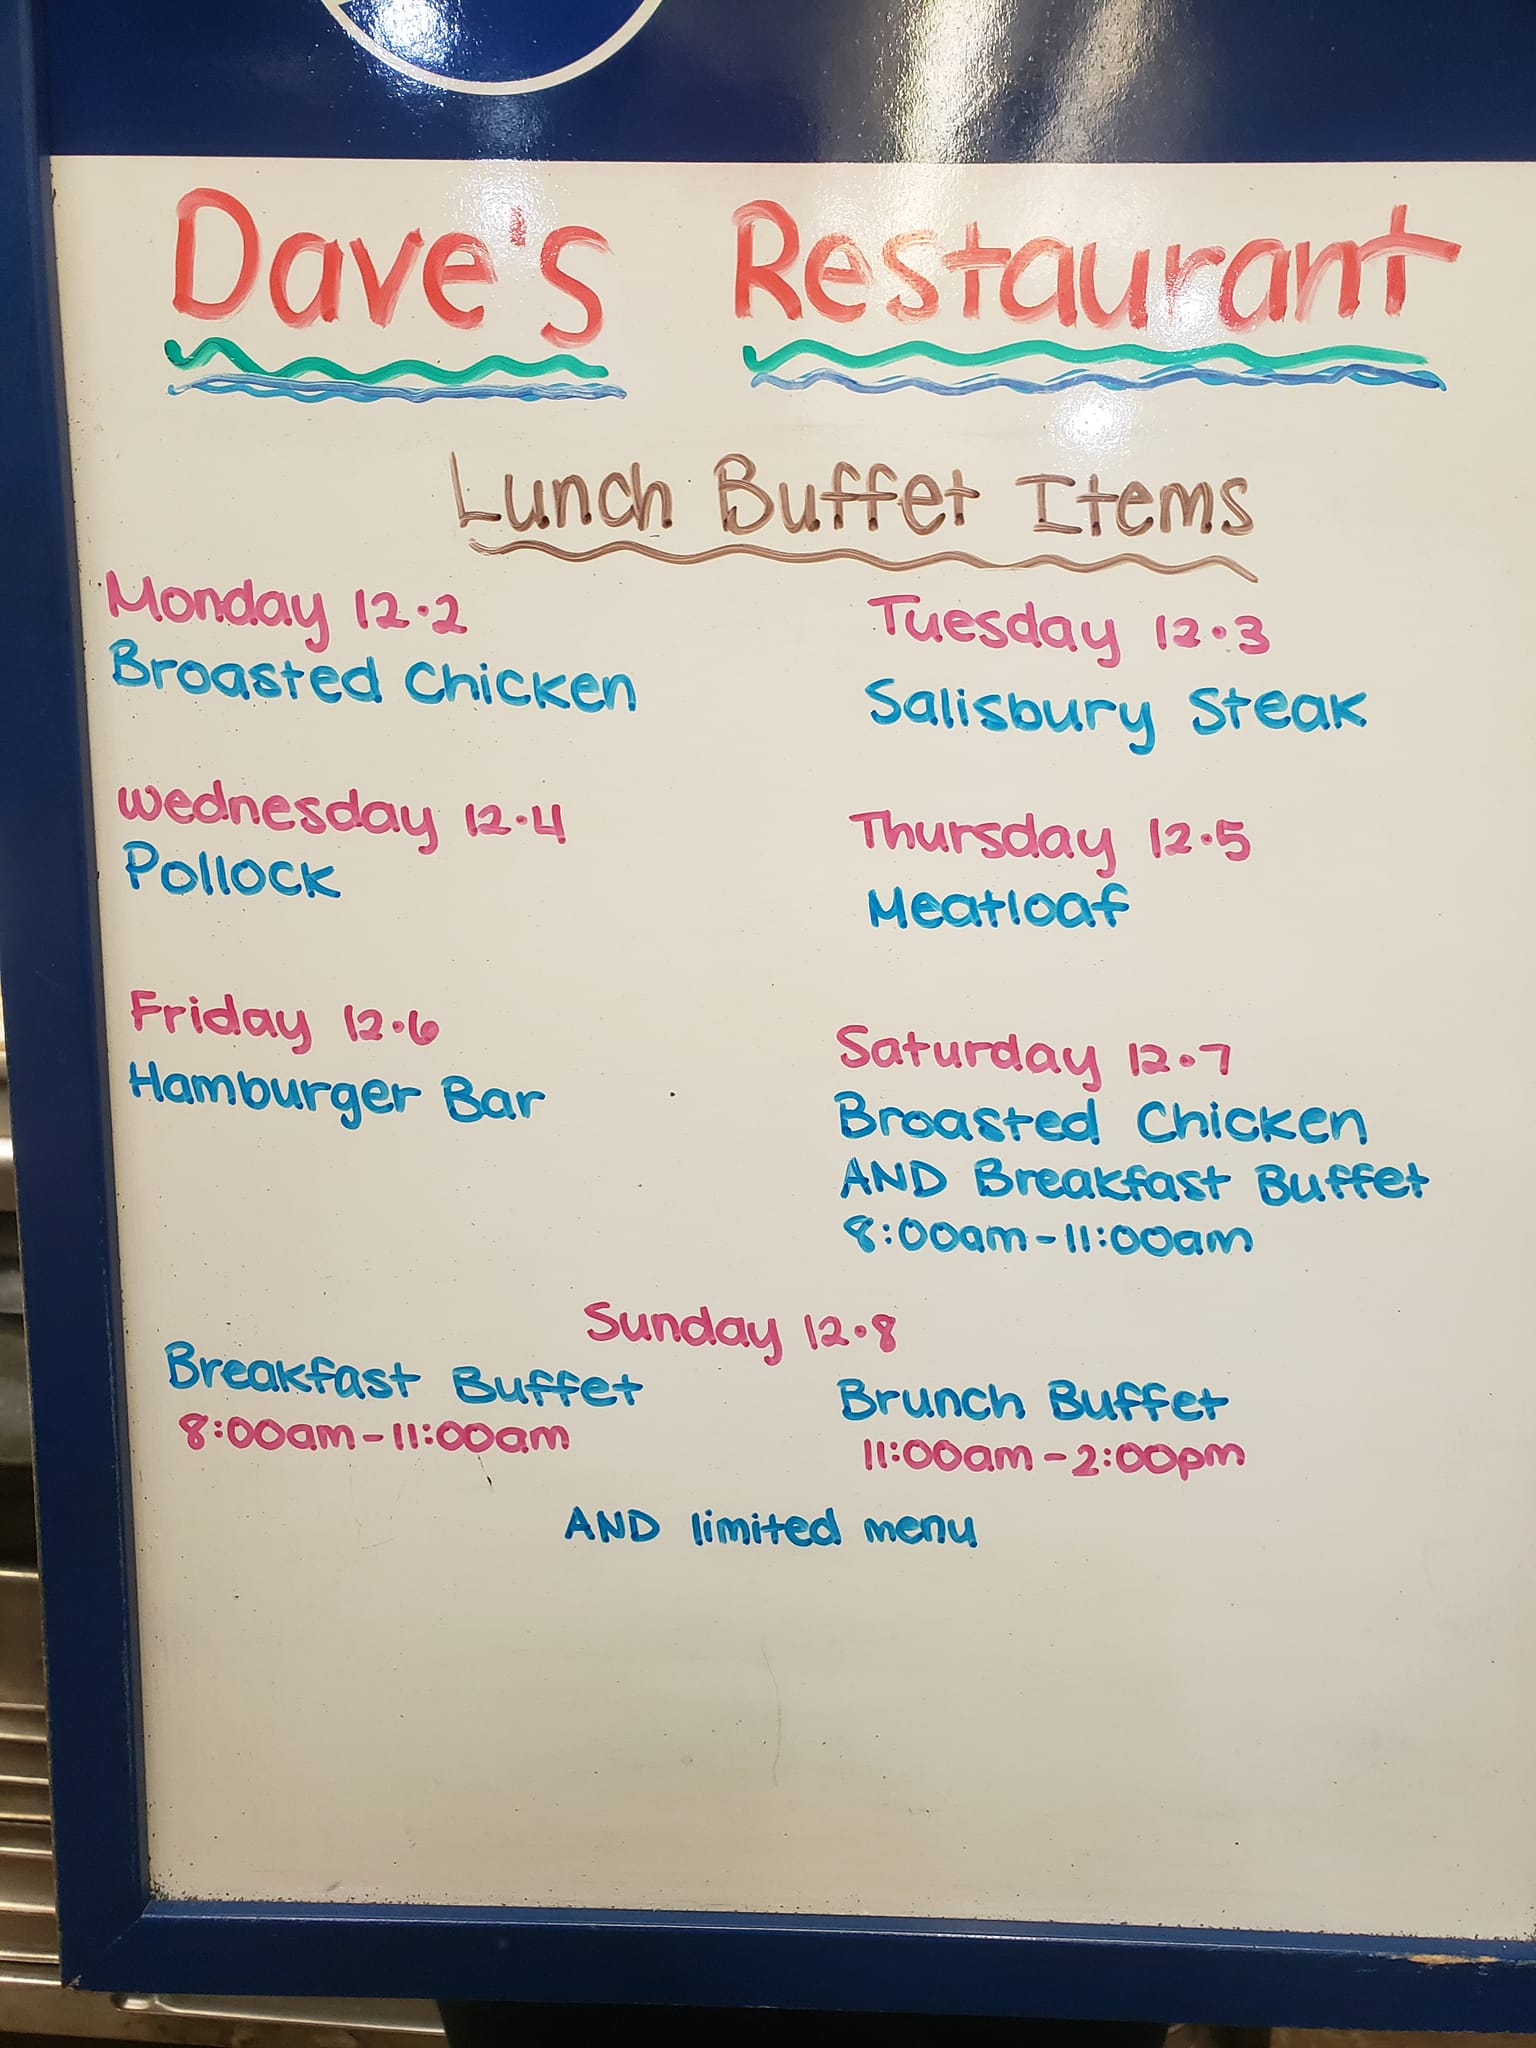 Dave's Restaurant
Lunch Buffet Items
Monday 12.2
Broasted Chicken
Tuesday 12.3
Salisbury Steak
Wednesday 12.4
Pollock
Thursday 12.5
Meatloaf
Friday 12.6
Hamburger Bar
Saturday 12.7
Broasted Chicken
AND Breakfast Buffet
8:00am-11:00am
Sunday 12.8
Breakfast Buffet
8:00am-11:00am
Brunch Buffet
11:00am-2:00pm
AND limited menu